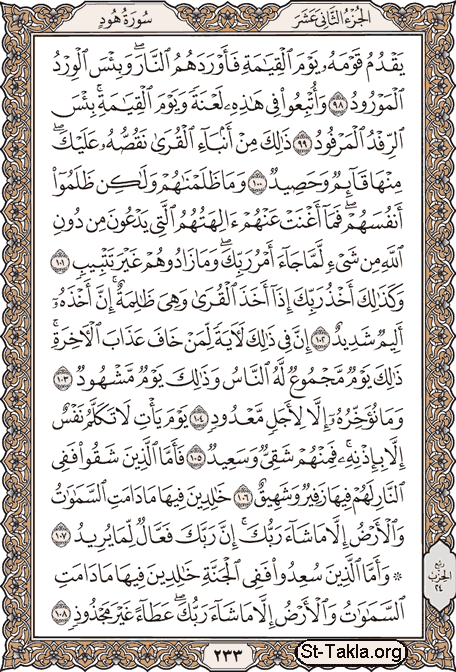 الجزء الثاني عشر
سورة هود
يَقْدُمُ قَوْمَهُۥ يَوْمَ ٱلْقِيَٰمَةِ فَأَوْرَدَهُمُ ٱلنَّارَ ۖ وَبِئْسَ ٱلْوِرْدُ
ٱلْمَوْرُودُ ٩٨ وَأُتْبِعُوا۟ فِى هَٰذِهِۦ لَعْنَةً وَيَوْمَ ٱلْقِيَٰمَةِ ۚ بِئْسَ
ٱلرِّفْدُ ٱلْمَرْفُودُ ٩٩ ذَٰلِكَ مِنْ أَنۢبَآءِ ٱلْقُرَىٰ نَقُصُّهُۥ عَلَيْكَ ۖ
مِنْهَا قَآئِمٌ وَحَصِيدٌ ١٠٠ وَمَا ظَلَمْنَٰهُمْ وَلَٰكِن ظَلَمُوٓا۟
أَنفُسَهُمْ ۖ فَمَآ أَغْنَتْ عَنْهُمْ ءَالِهَتُهُمُ ٱلَّتِى يَدْعُونَ مِن دُونِ
ٱللَّهِ مِن شَىْءٍ لَّمَّا جَآءَ أَمْرُ رَبِّكَ ۖ وَمَا زَادُوهُمْ غَيْرَ تَتْبِيبٍ ١٠١
وَكَذَٰلِكَ أَخْذُ رَبِّكَ إِذَآ أَخَذَ ٱلْقُرَىٰ وَهِىَ ظَٰلِمَةٌ ۚ إِنَّ أَخْذَهُۥٓ
أَلِيمٌ شَدِيدٌ ١٠٢ إِنَّ فِى ذَٰلِكَ لَءَايَةً لِّمَنْ خَافَ عَذَابَ ٱلْءَاخِرَةِ ۚ
ذَٰلِكَ يَوْمٌ مَّجْمُوعٌ لَّهُ ٱلنَّاسُ وَذَٰلِكَ يَوْمٌ مَّشْهُودٌ ١٠٣
وَمَا نُؤَخِّرُهُۥٓ إِلَّا لِأَجَلٍ مَّعْدُودٍ ١٠٤ يَوْمَ يَأْتِ لَا تَكَلَّمُ نَفْسٌ
إِلَّا بِإِذْنِهِۦ ۚ فَمِنْهُمْ شَقِىٌّ وَسَعِيدٌ ١٠٥ فَأَمَّا ٱلَّذِينَ شَقُوا۟ فَفِى
ٱلنَّارِ لَهُمْ فِيهَا زَفِيرٌ وَشَهِيقٌ ١٠٦ خَٰلِدِينَ فِيهَا مَا دَامَتِ ٱلسَّمَٰوَٰتُ
وَٱلْأَرْضُ إِلَّا مَا شَآءَ رَبُّكَ ۚ إِنَّ رَبَّكَ فَعَّالٌ لِّمَا يُرِيدُ ١٠٧
۞ وَأَمَّا ٱلَّذِينَ سُعِدُوا۟ فَفِى ٱلْجَنَّةِ خَٰلِدِينَ فِيهَا مَا دَامَتِ
ٱلسَّمَٰوَٰتُ وَٱلْأَرْضُ إِلَّا مَا شَآءَ رَبُّكَ ۖ عَطَآءً غَيْرَ مَجْذُوذٍ ١٠٨
ربع
الحزب
٢٤
٢٣٣
St-Takla.org